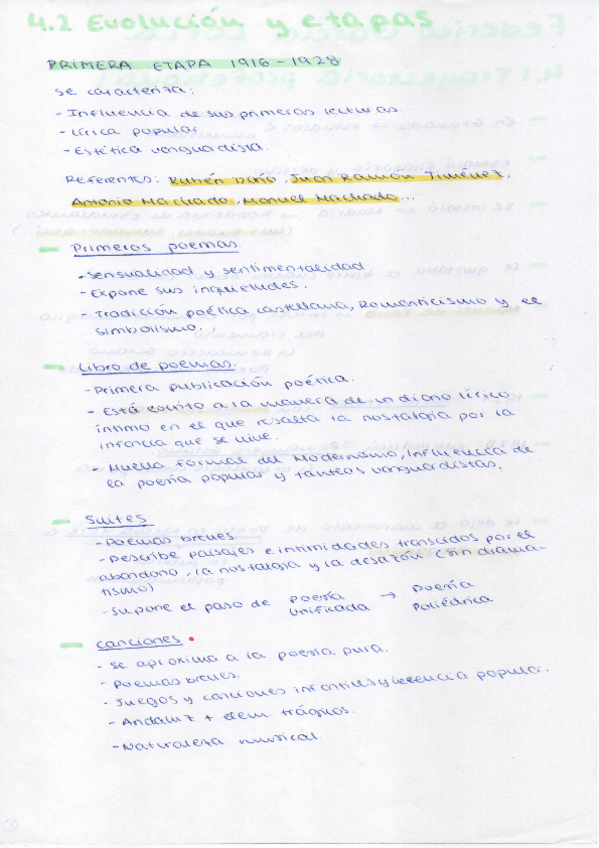 4.2 Evolución y etapas
PRIMERA ETAPA 1916-1928
se caracteriza:
- Influencia de sus primeras lecturas.
- Lírica popular
- Estética vanguardista.
Referentes: Rubén Darío, Juan Ramón Jiménez,
Antonio Machado, Manuel Machado...
- Primeros poemas.
- Sensualidad y sentimentalidad
- Expone sus inquietudes.
- Tradición poética castellana, Romanticismo y el
simbolismo.
- Libro de poemas.
- Primera publicación poética.
- Está escrito a la manera de un diario lírico
íntimo en el que resalta la nostalgia por la
infancia que se vive.
- Huella formal del Modernismo, Influencia de
la poesía popular y tanteos vanguardistas.
- Suites
- Poemas breves
- Describe paisajes e intimidades transcidos por el
abandono, la nostalgia y la desazón (sin drama-
tismo)
- Supone el paso de poesía unificada → poesía poliédrica
- Canciones.
- Se aproxima a la poesía pura.
- Poemas breves.
- Juegos y canciones infantiles y herencia popular.
- Andaluz + elem. trágicos.
- Naturaleza musical.